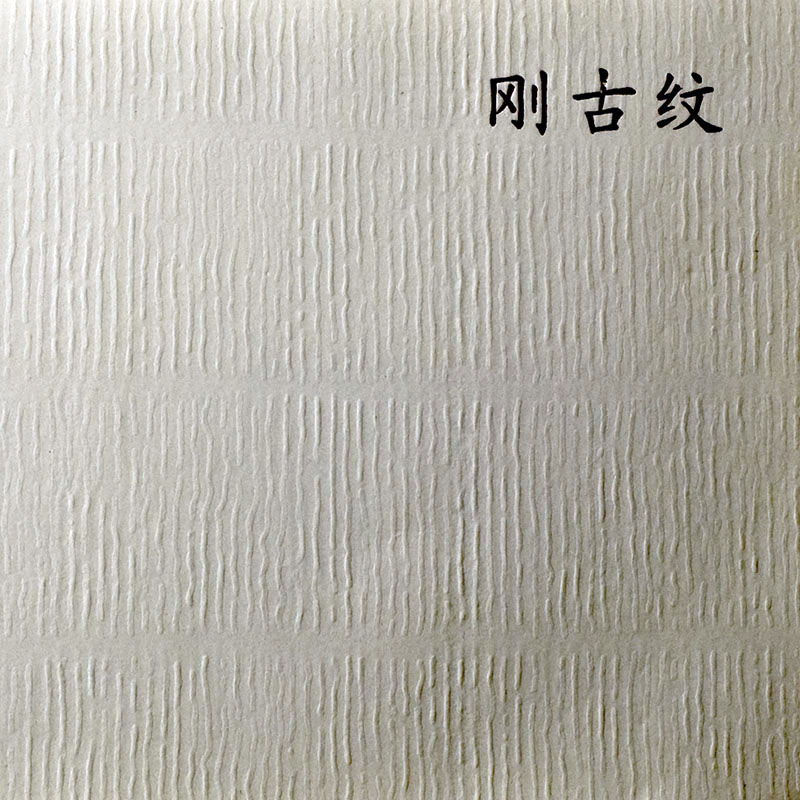 刚古纹